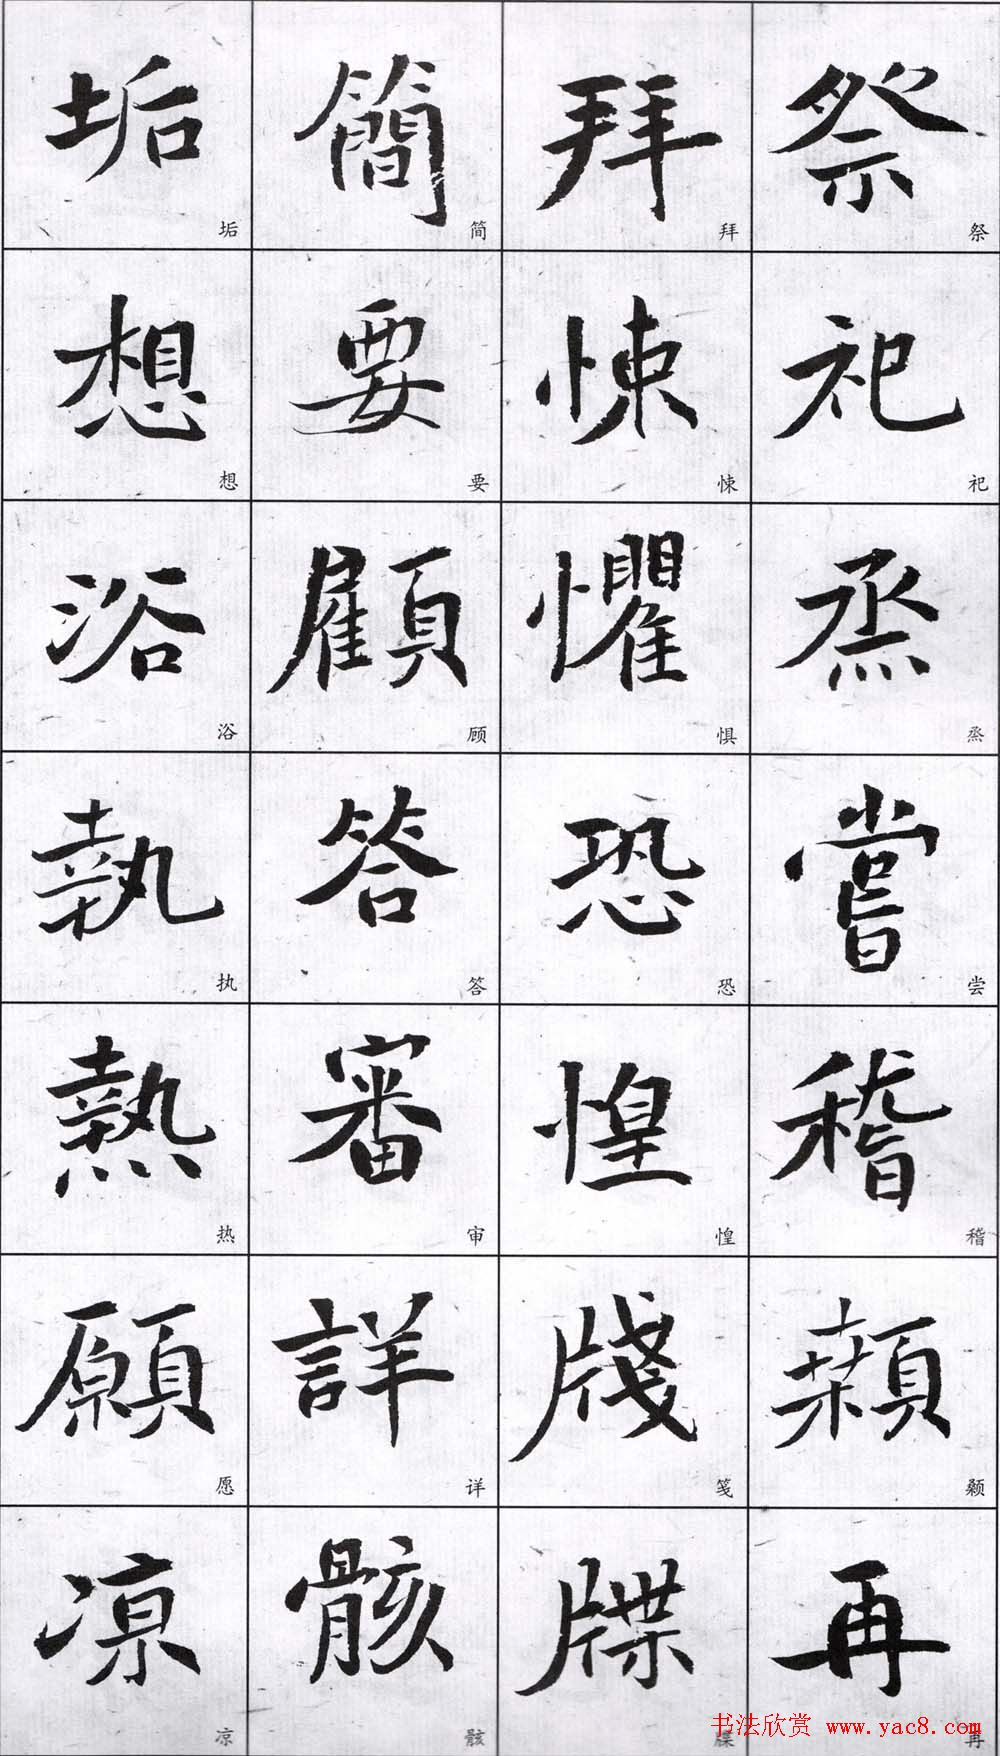 祭祀烝嘗稽顙再
祭祀烝尝稽颡再
拜悚懼恐惶牋牒
拜悚惧恐惶笺牒
簡要顧答審詳骸
简要顾答审详骸
垢想浴執熱願凉
垢想浴执热愿凉
书法欣赏 www.yac8.com